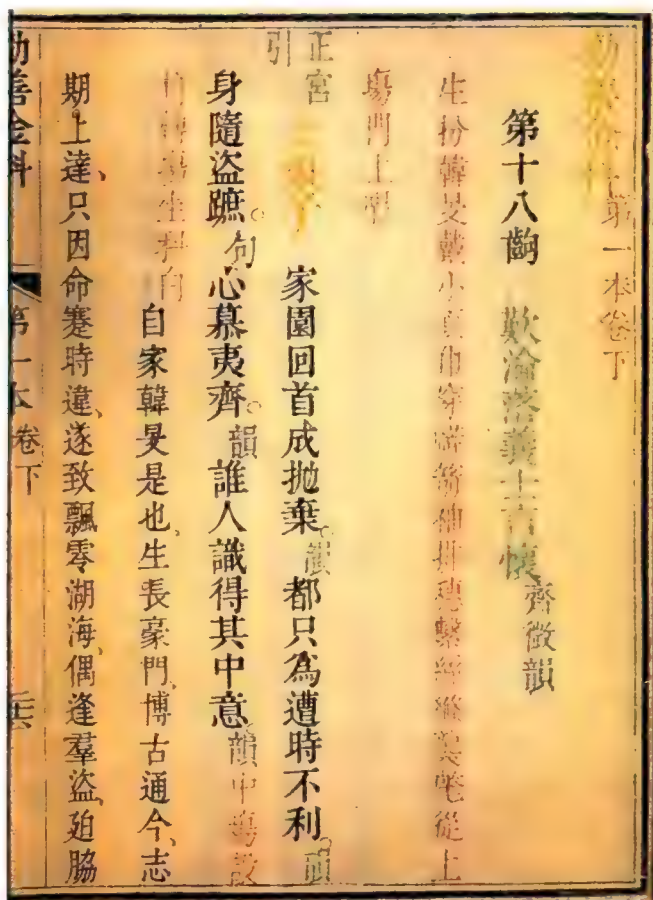 勸善金科第一本卷下
第十八齣 歎淪落義士言懷 齊微韻
生扮韓旻戴小頁巾穿箭袖排穗繫從上
場門上唱
正宮引 家園回首成拋棄韻都只為遭時不利韻
身隨盜蹠。句心慕夷齊。韻誰人識得其中意韻中場設
椅轉場坐科白自家韓旻是也、生長豪門、博古通今、志
期上達、只因命蹇時違、遂致飄零湖海、偶逢羣盜、廹脇
勸善金科 第一本卷下